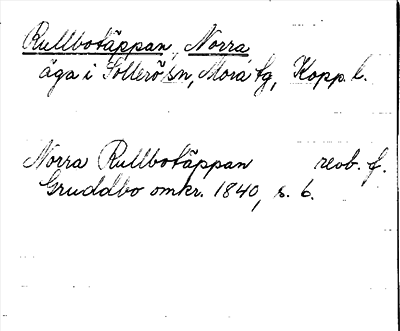 Rullbotäppan, Norra
äga i Sollerö sn, Mora tg, Kopp. l.
Norra Rullbotäppan reob. f.
Gruddbo omkr. 1840, s. 6.